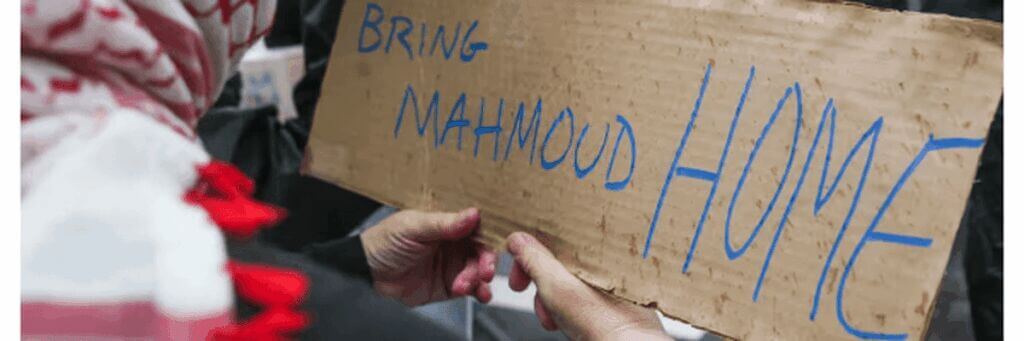 BRING
MAHMOUD HOME